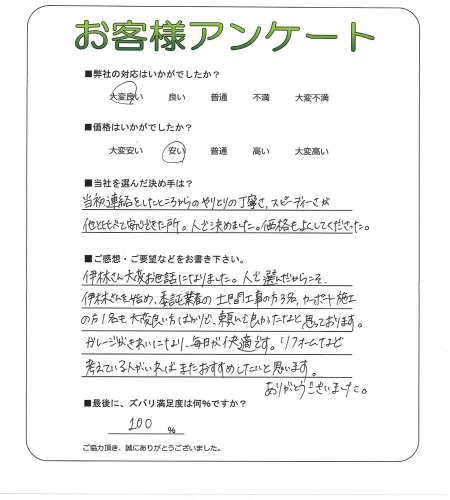 お客様アンケート
■弊社の対応はいかがでしたか？
大変良い 良い 普通 不満 大変不満
■価格はいかがでしたか？
大変安い 安い 普通 高い 大変高い
■当社を選んだ決め手は？
当初連絡をしたところからのやりとりの丁寧さ、スピーディーさが
他と比べて安心できた所。人で決めました。価格もよくしてくださった。
■ご感想・ご要望などをお書き下さい。
伊林さん大変お世話になりました。人で選んだからこそ、
伊林さんを始め、委託業者の土間工事の方3名、カーポート施工
の方1名も大変良い方ばかりで、頼んで良かったなと思っております。
ガレージがきれいになり、毎日が快適です。リフォームなど
考えている人がいればまたおすすめしたいと思います。
ありがとうございました。
■最後に、ズバリ満足度は何％ですか？
100 ％
ご協力頂き、誠にありがとうございました。